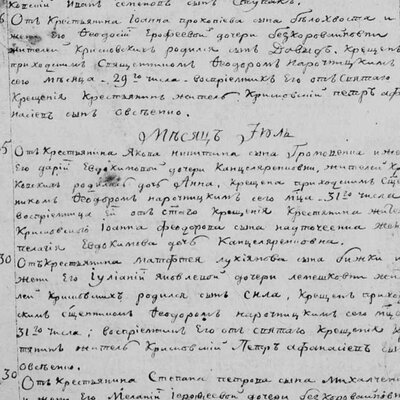 Иванъ семеновъ сынъ
Отъ Крестьянина Iоанна прокопiева сына бѣлохвоста и
жены Его Ѳеодосiи Ерофеевой дочери безкоровайновны
жителей Крисовскихъ родился сынъ Давидъ, Крещенъ
приходнимъ Священникомъ Ѳеодоромъ Нарочницкимъ
сего мѣсяца 29го числа воспрiемникъ Его отъ святаго
Крещенiя Крестьянинъ житель Крисовскiй петръ афа
насiевъ сынъ Овсѣенко.
Мѣсяцъ Iюль
5 Отъ Крестьянина Якова никитина сына Громоценка и же
Его дарiи Евдокимовой дочери Канцеляреновны, жителей К
родилась дочь Анна, крещена приходнимъ Свще
никомъ Ѳеодоромъ нарочницкимъ сего мца 31го числа
воспрiемница Ей отъ стаго крещенiя Крестьянина жите
Iоанна Ѳеодорова сына надточеенка жена
пелагiя Евдокимова дочь Канцеляреновна.
30 Отъ Крестьянина матѳея лукiянова сына бижки и
жены Его Iулiанiи Яковлевой дочери лепешковны жи
лей Крисовскихъ родился сынъ Сила, Крещенъ прихо
скимъ сщенникомъ Ѳеодоромъ нарочницкимъ сего мца
31го числа; воспрiемникъ Его отъ святаго Крещенiя К
житель Крисовскiй Петръ афанасiевъ сын
Овсѣенко.
30 Отъ Крестьянина Степана петрова сына Михалченка
и жены Его Меланiи Iерофеевой дочери безкоровайновны